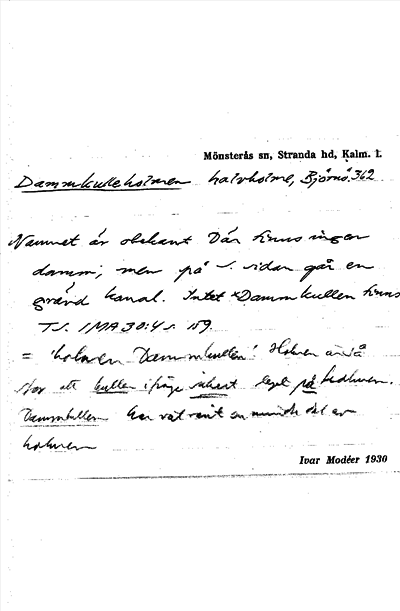 Mönsterås sn, Stranda hd, Kalm. l.
Dammkulleholmen halvholme, Björnö. 362
Namnet är obekant Där finns ingen
damm; men på S. sidan går en
grävd kanal. Intet *Dammkullen finns
T.S. IMA 30:4 s. 159.
= 'holmen Dammkullen'. Holmen är så
stor att kullen i fråga säkert legat på holmen.
Dammkullen har varit en mindre del av
holmen
Ivar Modéer 1930